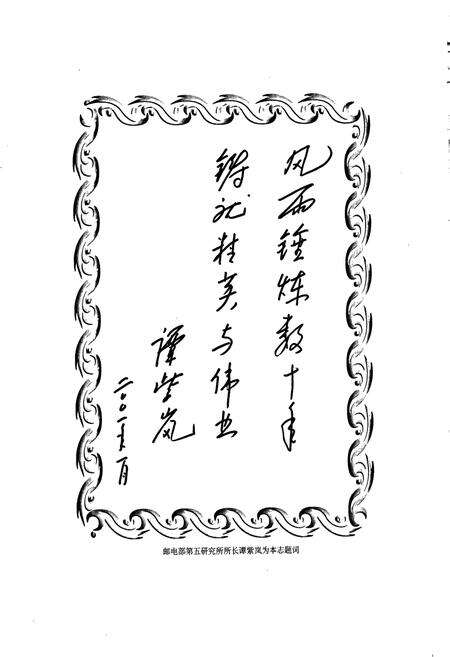 风雨锤炼数十年
铸就精英与伟业
谭紫岚
二〇〇一年一月
邮电部第五研究所所长谭紫岚为本志题词